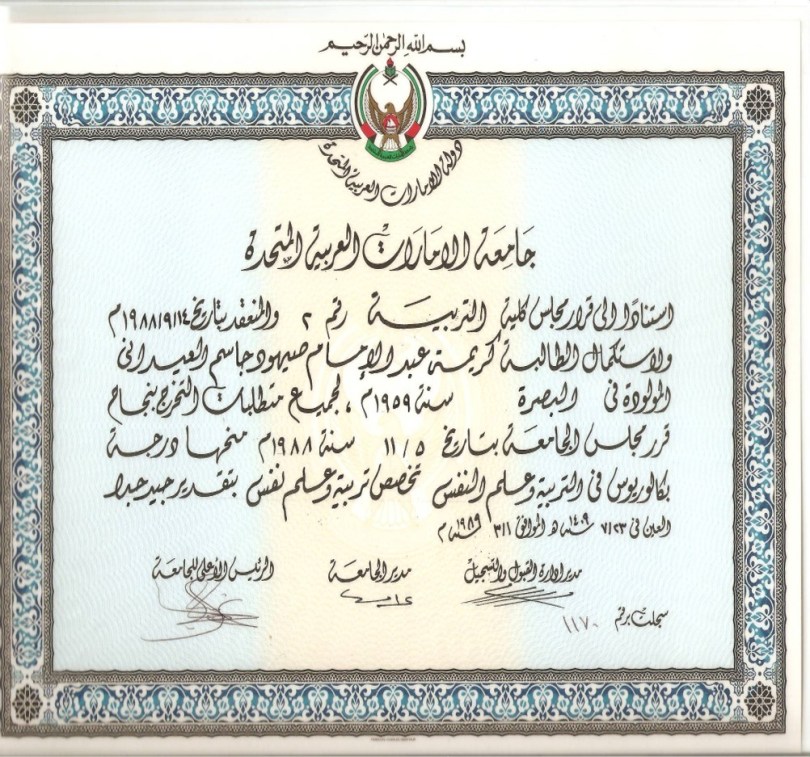 بسم الله الرحمن الرحيم
دولة الإمارات العربية المتحدة
جامعة الامارات العربية المتحدة
استنادًا الى قرار مجلس كلية التربية رقم ٢ والمنعقد بتاريخ ١٩٨٨/٩/١٤م
ولاستكمال الطالبة كريمة عبد الإمام صيهود جاسم العيداني
المولودة في البصرة سنة ١٩٥٩م ، لجميع متطلبات التخرج بنجاح
قرر مجلس الجامعة بتاريخ ١١/٥ سنة ١٩٨٨م منحها درجة
بكالوريوس في التربية وعلم النفس تخصص تربية وعلم نفس بتقدير جيد جدا
العين في ٧/٢٣ سنة ١٤٠٩ هـ الموافق ٣/١ سنة ١٩٨٩ م
مدير ادارة القبول والتسجيل مدير الجامعة الرئيس الأعلى للجامعة
سجلت برقم ١١٧٠